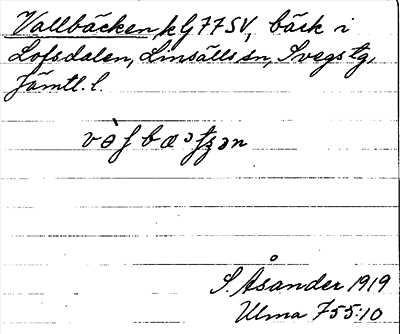 Vallbäcken, k G 77 SV, bäck i
Lofsdalen, Linsälls sn, Svegs tg,
Jämtl. l.
S. Åsander 1919
Ulma 755:10